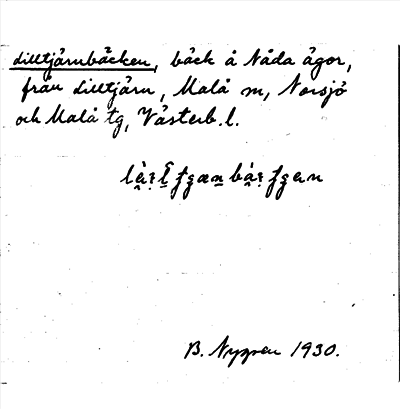 Lilltjärnbäcken, bäck å Nåda ägor,
från Lilltjärn, Malå sn, Norsjö
och Malå tg, Västerb. l.
B. Nygren 1930.